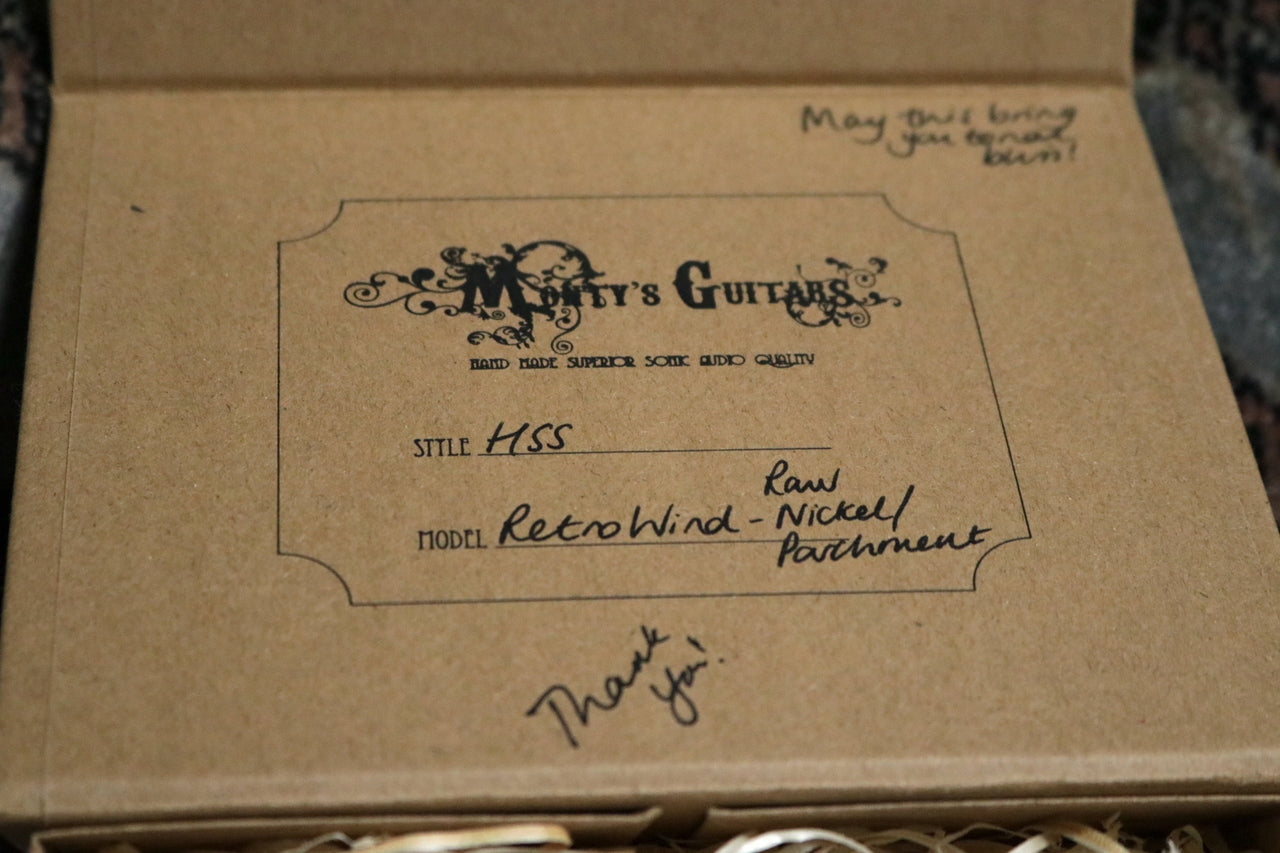 May this bring
you tonal
bliss!
MONTY'S GUITARS
HAND MADE SUPERIOR SONIC AUDIO QUALITY
STYLE HSS
MODEL RetroWind - Raw
Nickel/
Parchment
Thank
You!